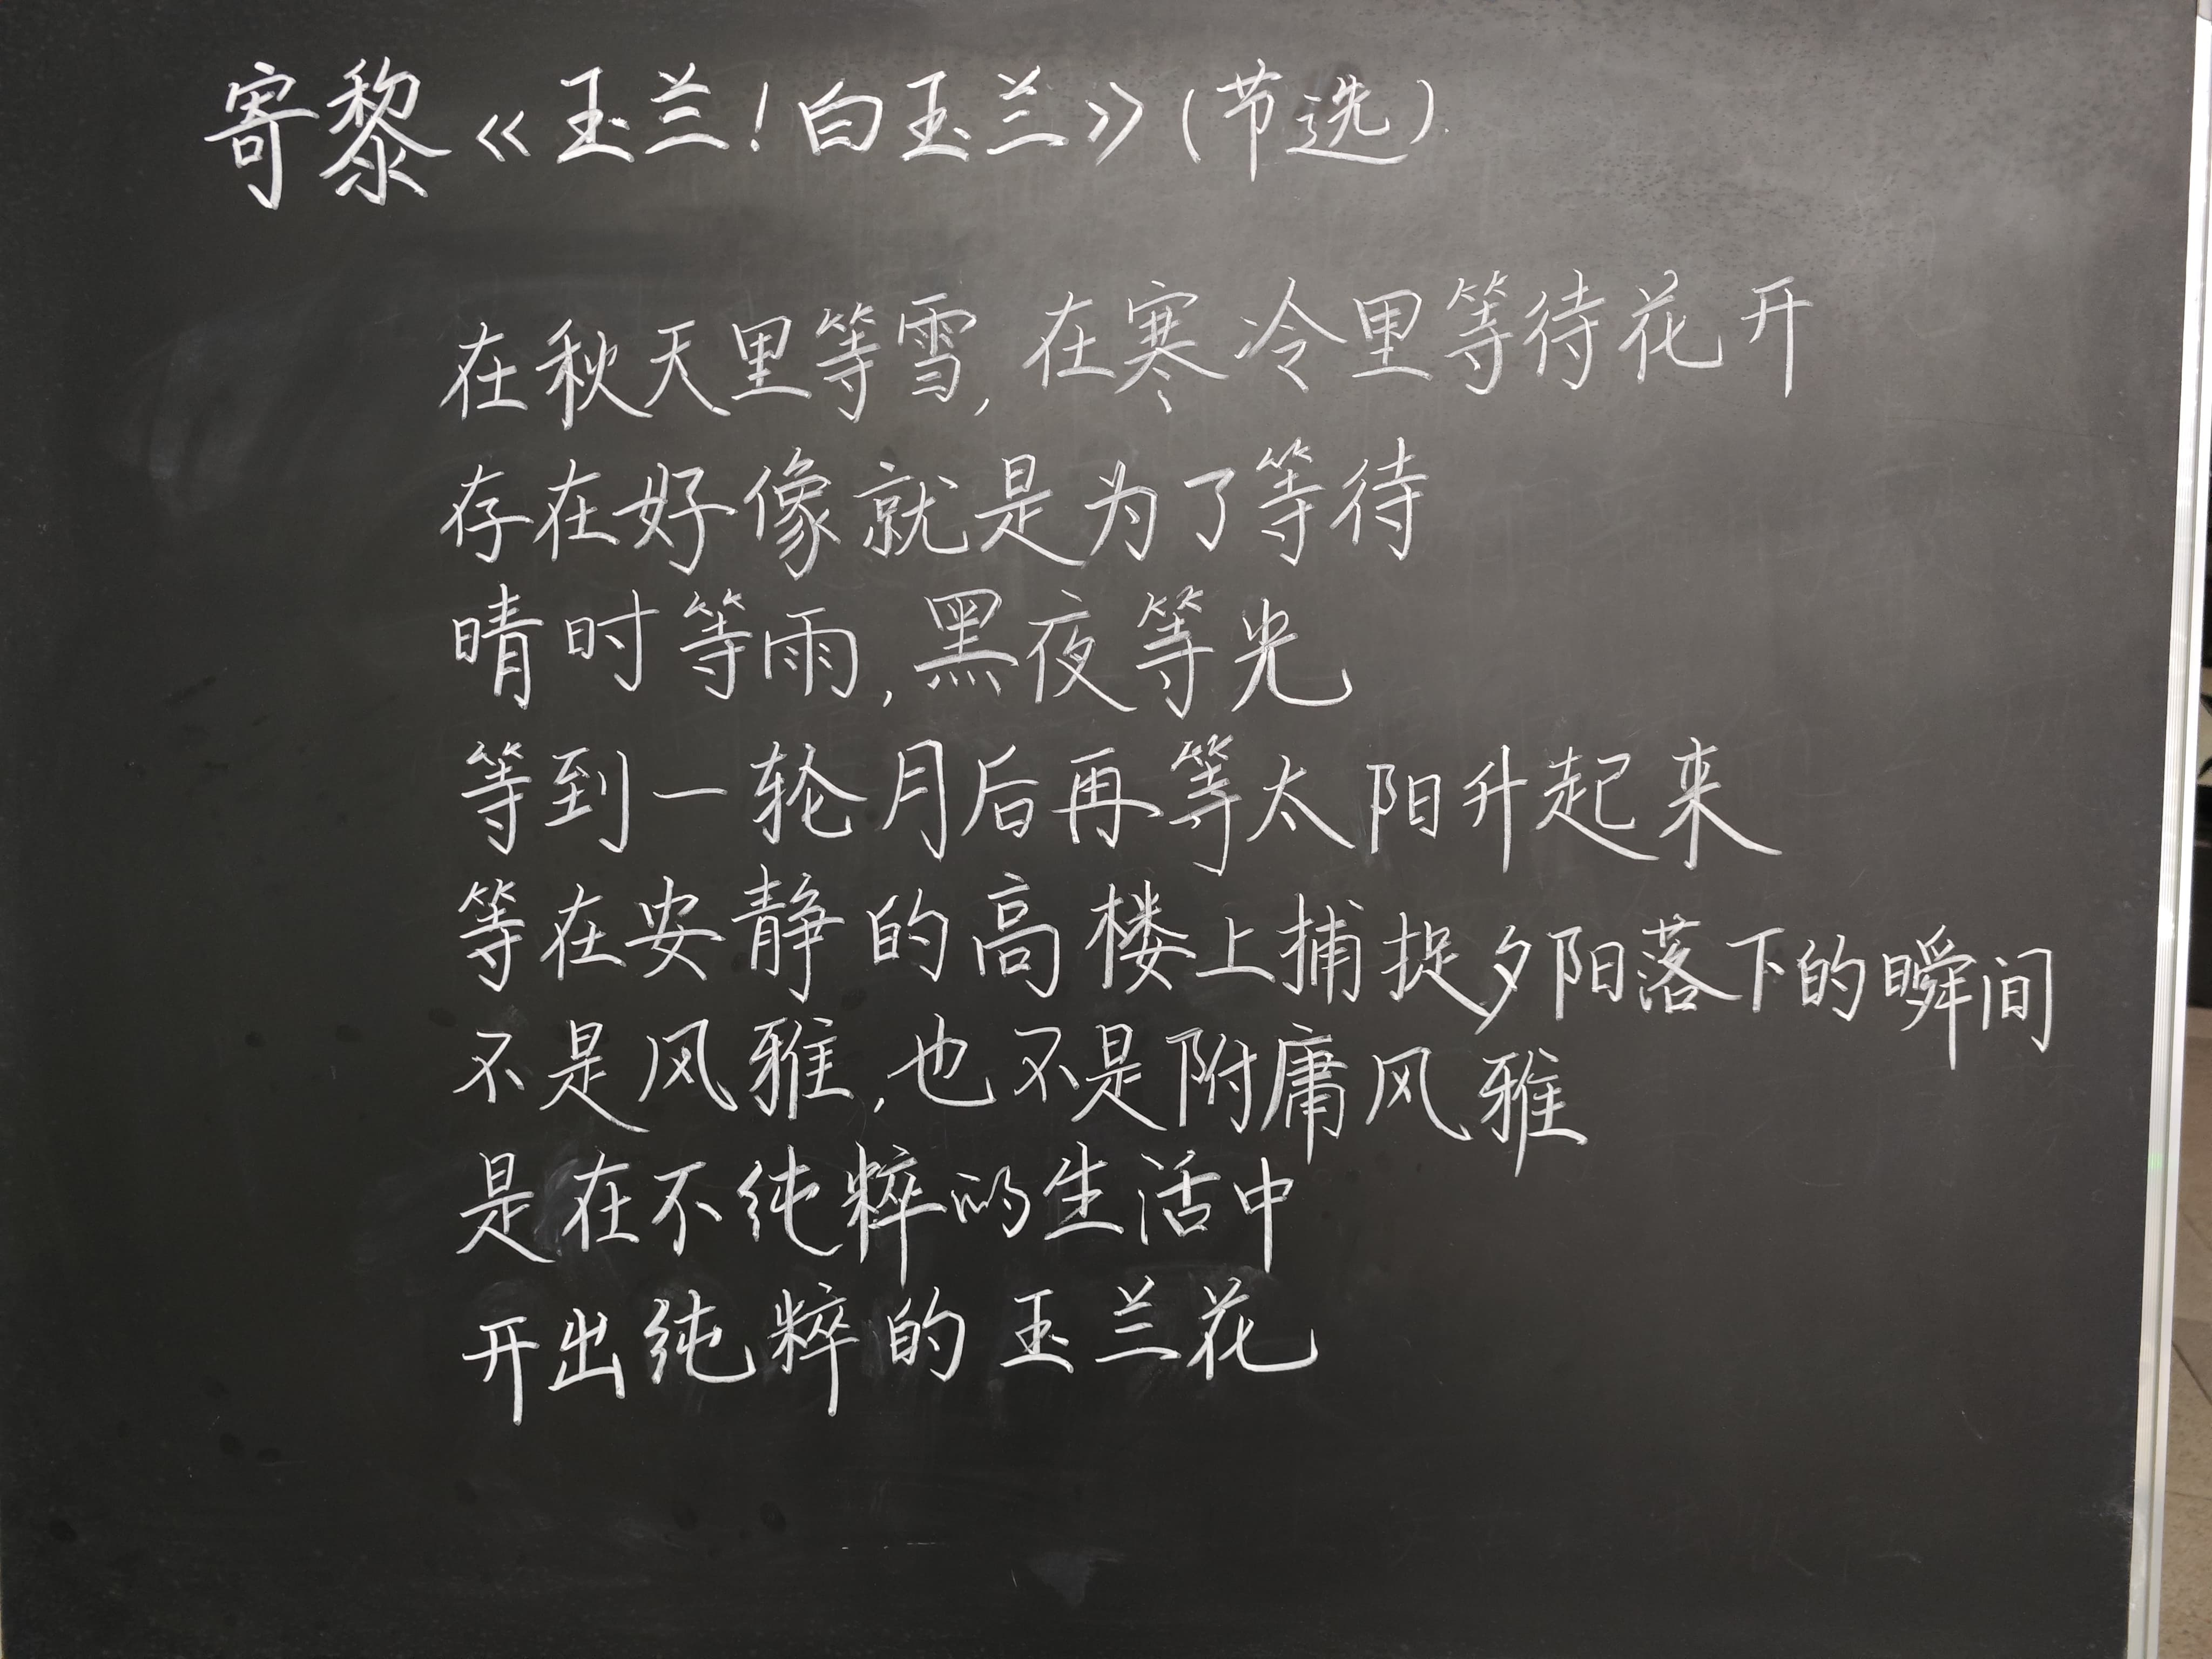 寄黎《玉兰！白玉兰》（节选）
在秋天里等雪，在寒冷里等待花开
存在好像就是为了等待
晴时等雨，黑夜等光
等到一轮月后再等太阳升起来
等在安静的高楼上捕捉夕阳落下的瞬间
不是风雅，也不是附庸风雅
是在不纯粹的生活中
开出纯粹的玉兰花